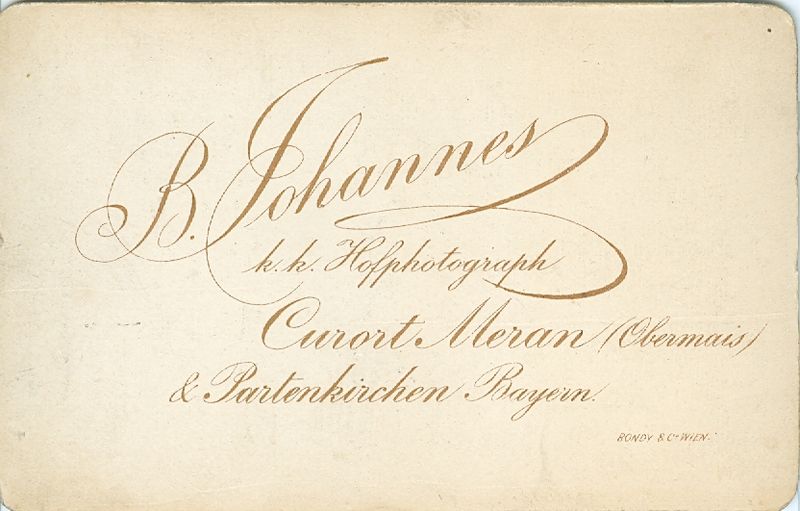 B. Johannes
k. k. Hofphotograph
Curort Meran (Obermais)
& Partenkirchen Bayern.
BONDY & Co WIEN.